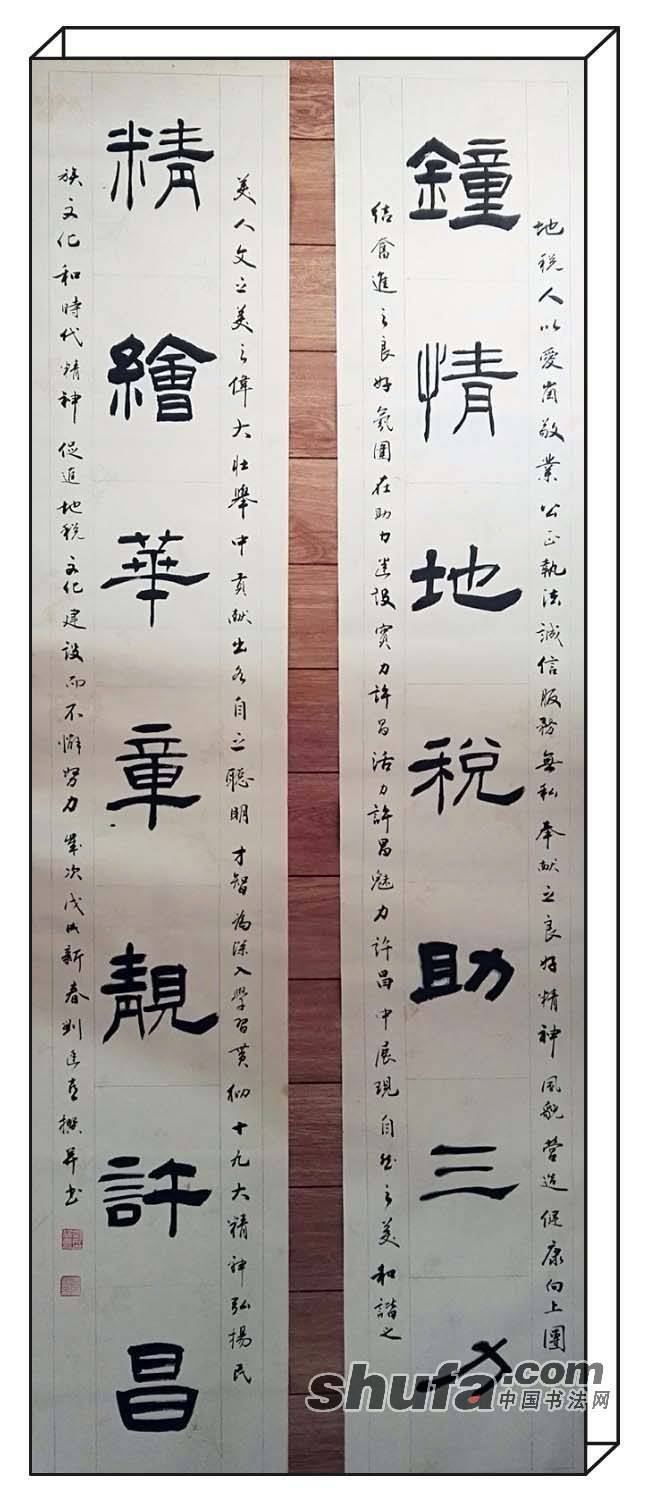 地税人以愛崗敬業公正執法誠信服務無私奉献之良好精神風貌營造健康向上團
鐘情地税助三力
结奮進之良好氛圍在助力建設實力許昌活力許昌魅力許昌中展現自然之美和諧之
美人文之美之偉大壯舉中貢献出各自之聰明才智為深入學習貫彻十九大精神弘揚民
精繪華章靚許昌
族文化和時代精神促進地税文化建設而不懈努力歲次戊戌新春刘撰并书
shufa.com
中国书法网